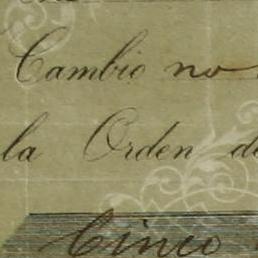 Cambio no
la Orden de
Cinco